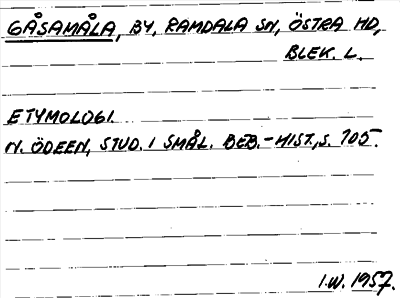 GÅSAMÅLA, BY, RAMDALA SN, ÖSTRA HD,
BLEK. L.
ETYMOLOGI.
N. ÖDEEN, STUD. I SMÅL. BEB.-HIST., S. 105.
I.W. 1957.